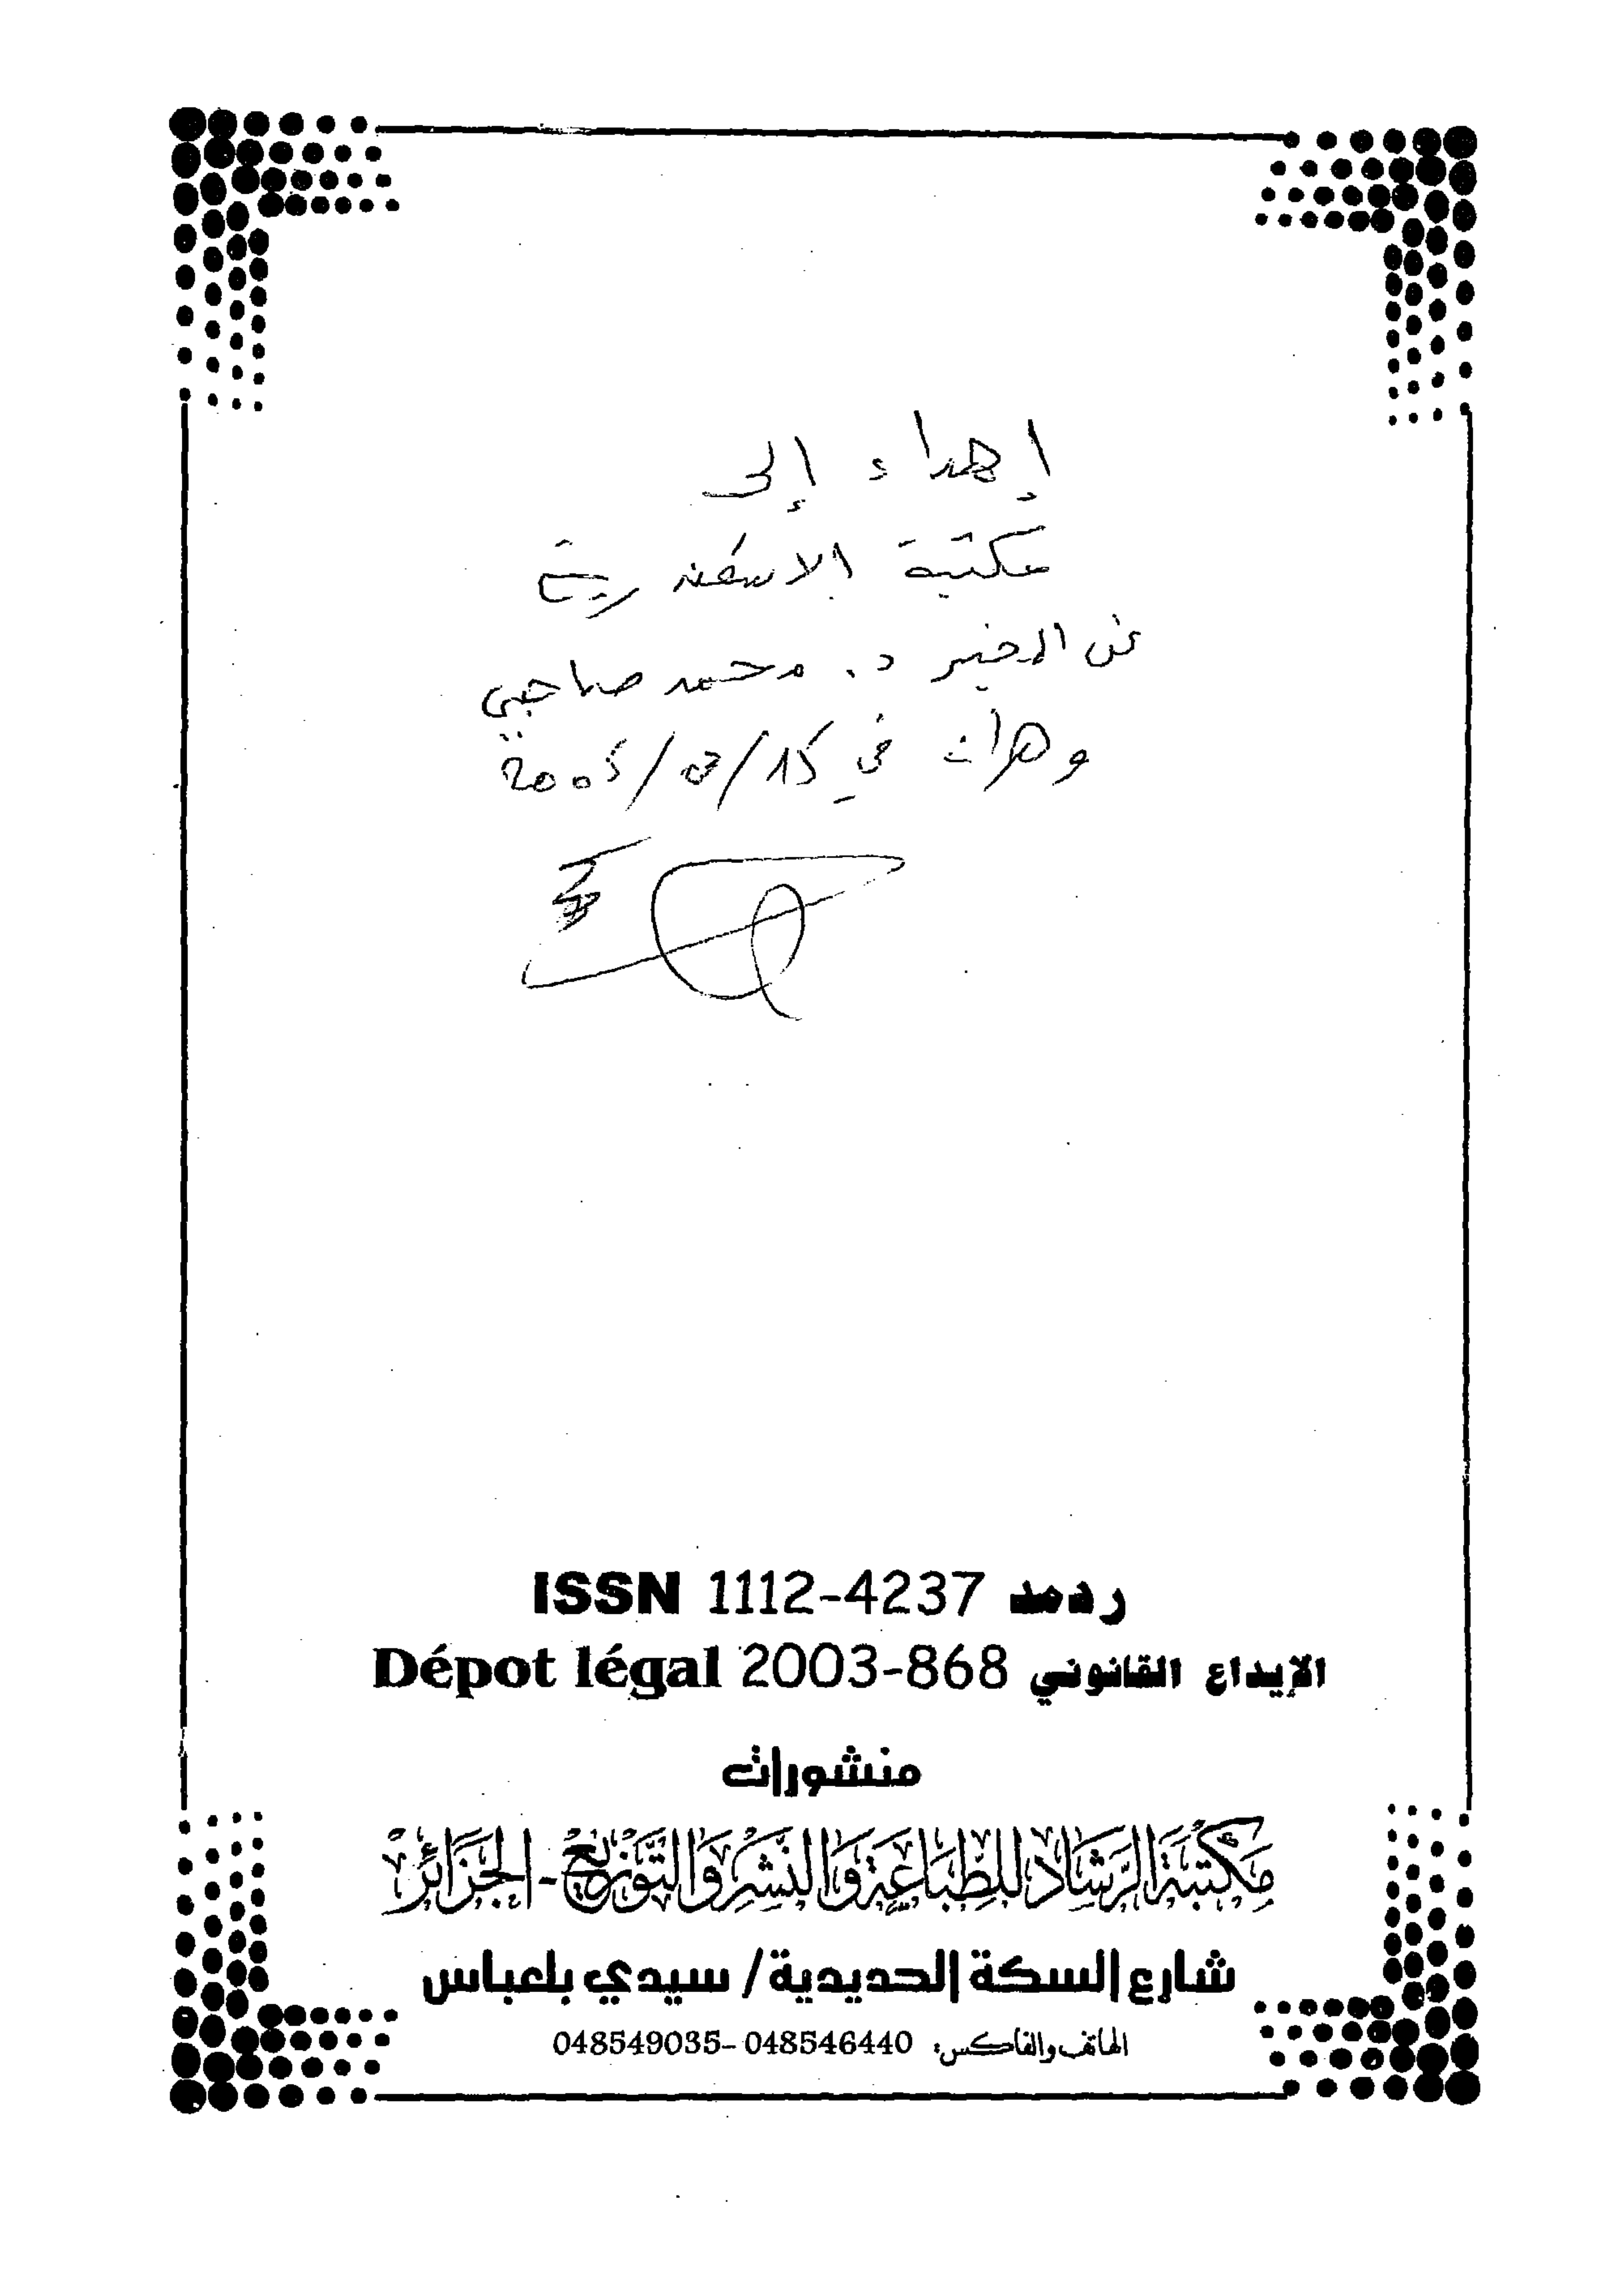 إهداء إلى
مكتبة الاسكندرية
عن المخبر د. محمد صاحبي
وهران في 15/ /2005
ISSN 1112-4237 ردمد
Dépot légal 2003-868 الإيداع القانوني
منشورات
مَكْتَبَةُ الرَّشَادِ لِلطِّبَاعَةِ وَالنَّشْرِ وَالتَّوْزِيعِ - الجَزَائِرْ
شارع السكة الحديدية / سيدي بلعباس
الهاتف والفاكس: 048546440 -048549035